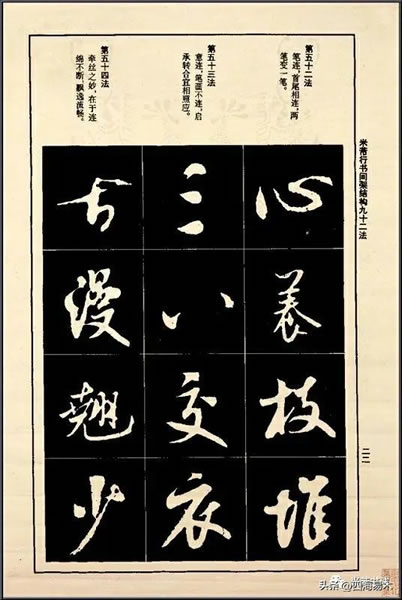 米芾行书间架结构九十二法
二二
第五十二法
笔连,首尾相连,两
笔变一笔。
心養枝堆
第五十三法
意连,笔不连,启
承转合宜相照应。
三八交衣
第五十四法
牵丝之妙,在于连
绵不断,飘逸流畅。
古漫翘少
头条@西海易木